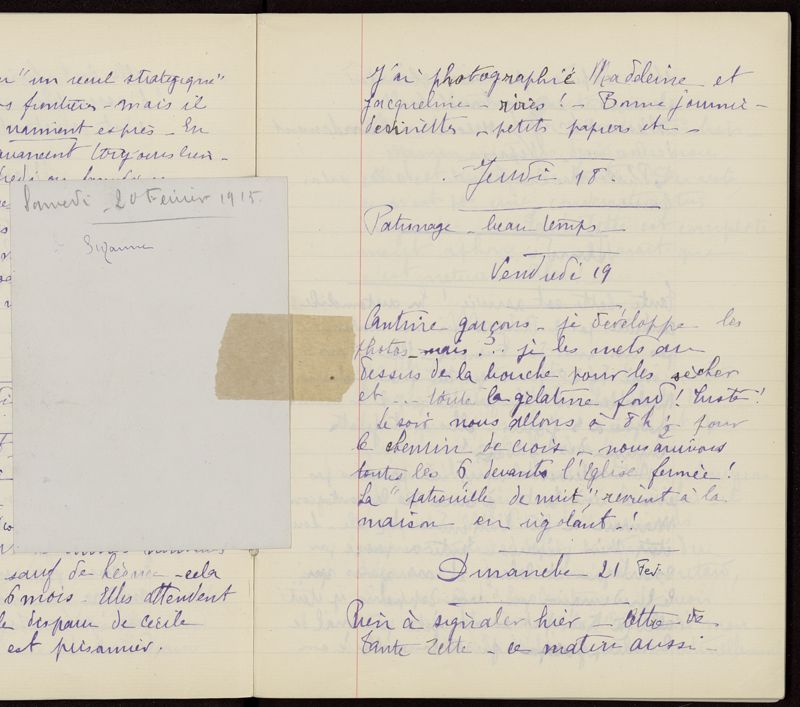 " un recul stratégique "
frontières - mais il
vraiment exprès - En
sauf de Régine - cela
6 mois - Elles attendent
de Cécile
est prisonnier.
Samedi - 20 Février 1915.
Suzanne
J'ai photographié Madeleine et
Jacqueline - rires ! - Bonne journée -
devinettes - petits papiers etc -
Jeudi 18.
Patronage - beau temps -
Vendredi 19
Cantine garçons - je développe les
photos - mais ? . . je les mets au
dessus de la bouche pour les sécher
et . . . toute la gélatine fond ! Zuste !
Le soir nous allons à 8h ½ pour
le chemin de croix - nous arrivons
toutes les 6 devant l'Eglise fermée !
La " patrouille de nuit " revient à la
maison en rigolant !
Dimanche 21 Fev.
Rien à signaler hier - lettre de
tante Zette - ce matin aussi -